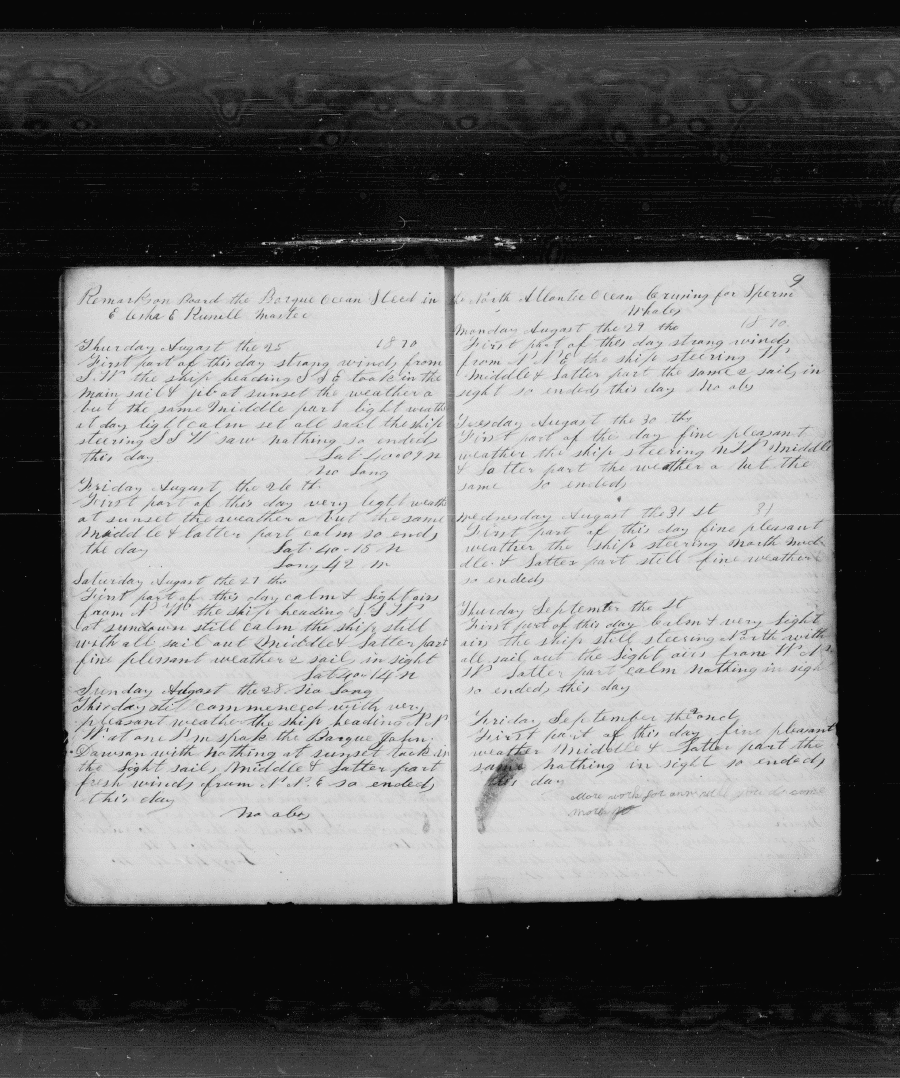 Remarks on Board the Barque Ocean Steed in
E lisha E Russell Master
Thursday Augast the 25 1870
First part of this day strang winds from
S W the ship heading S S E took in the
main sail & jib at sunset the weather a
but the same middle part light weath
at day light calm set all sail the ship
steering S S W saw nothing so ended
this day Lat 40=09 N
No Long
Friday Augast the 26 th
First part of this day very light weath
at sunset the weather a but the same
middle & latter part calm so ends
the day Lat 40-15 N
Long 42 m
Saturday Augast the 27 the
First part of this day calm & light airs
from N W the ship heading S S W
at sundown still calm the ship still
with all sail out middle & latter part
fine pleasant weather 2 sail in sight
Lat 40-14 N
Sunday Augast the 28 No Long
This day commenced with very
pleasant weather the ship heading N N
W at one P m spoke the Barque John
Dawson with nothing at sunset took in
the light sail middle & latter part
fresh winds from N N E so ended
this day
No abs
9
the North Atlantic Ocean Crusing for Sperm
Whales
Monday Augast the 29 the 1870
First part of this day strang winds
from N N E the ship steering W
middle & latter part the same 2 sails in
sight so ended this day No abs
Tuesday Augast the 30 the
First part of the day fine pleasant
weather the ship steering N W middle
& latter part the weather a but the
same so ended
Wednesday Augast the 31 st 31
First part of this day fine pleasant
weather the ship steering North mid
dle & latter part still fine weather
so ended
Thurday September the 1st
First part of this day Calm & very light
airs the ship still steering North with
all sail out the light airs from W N
W latter part calm nothing in sigh
so ended this day
Friday September the 2nd
First part of this day fine pleasant
weather middle & latter part the
same nothing in sight so ended
this day
More work for you do some
more